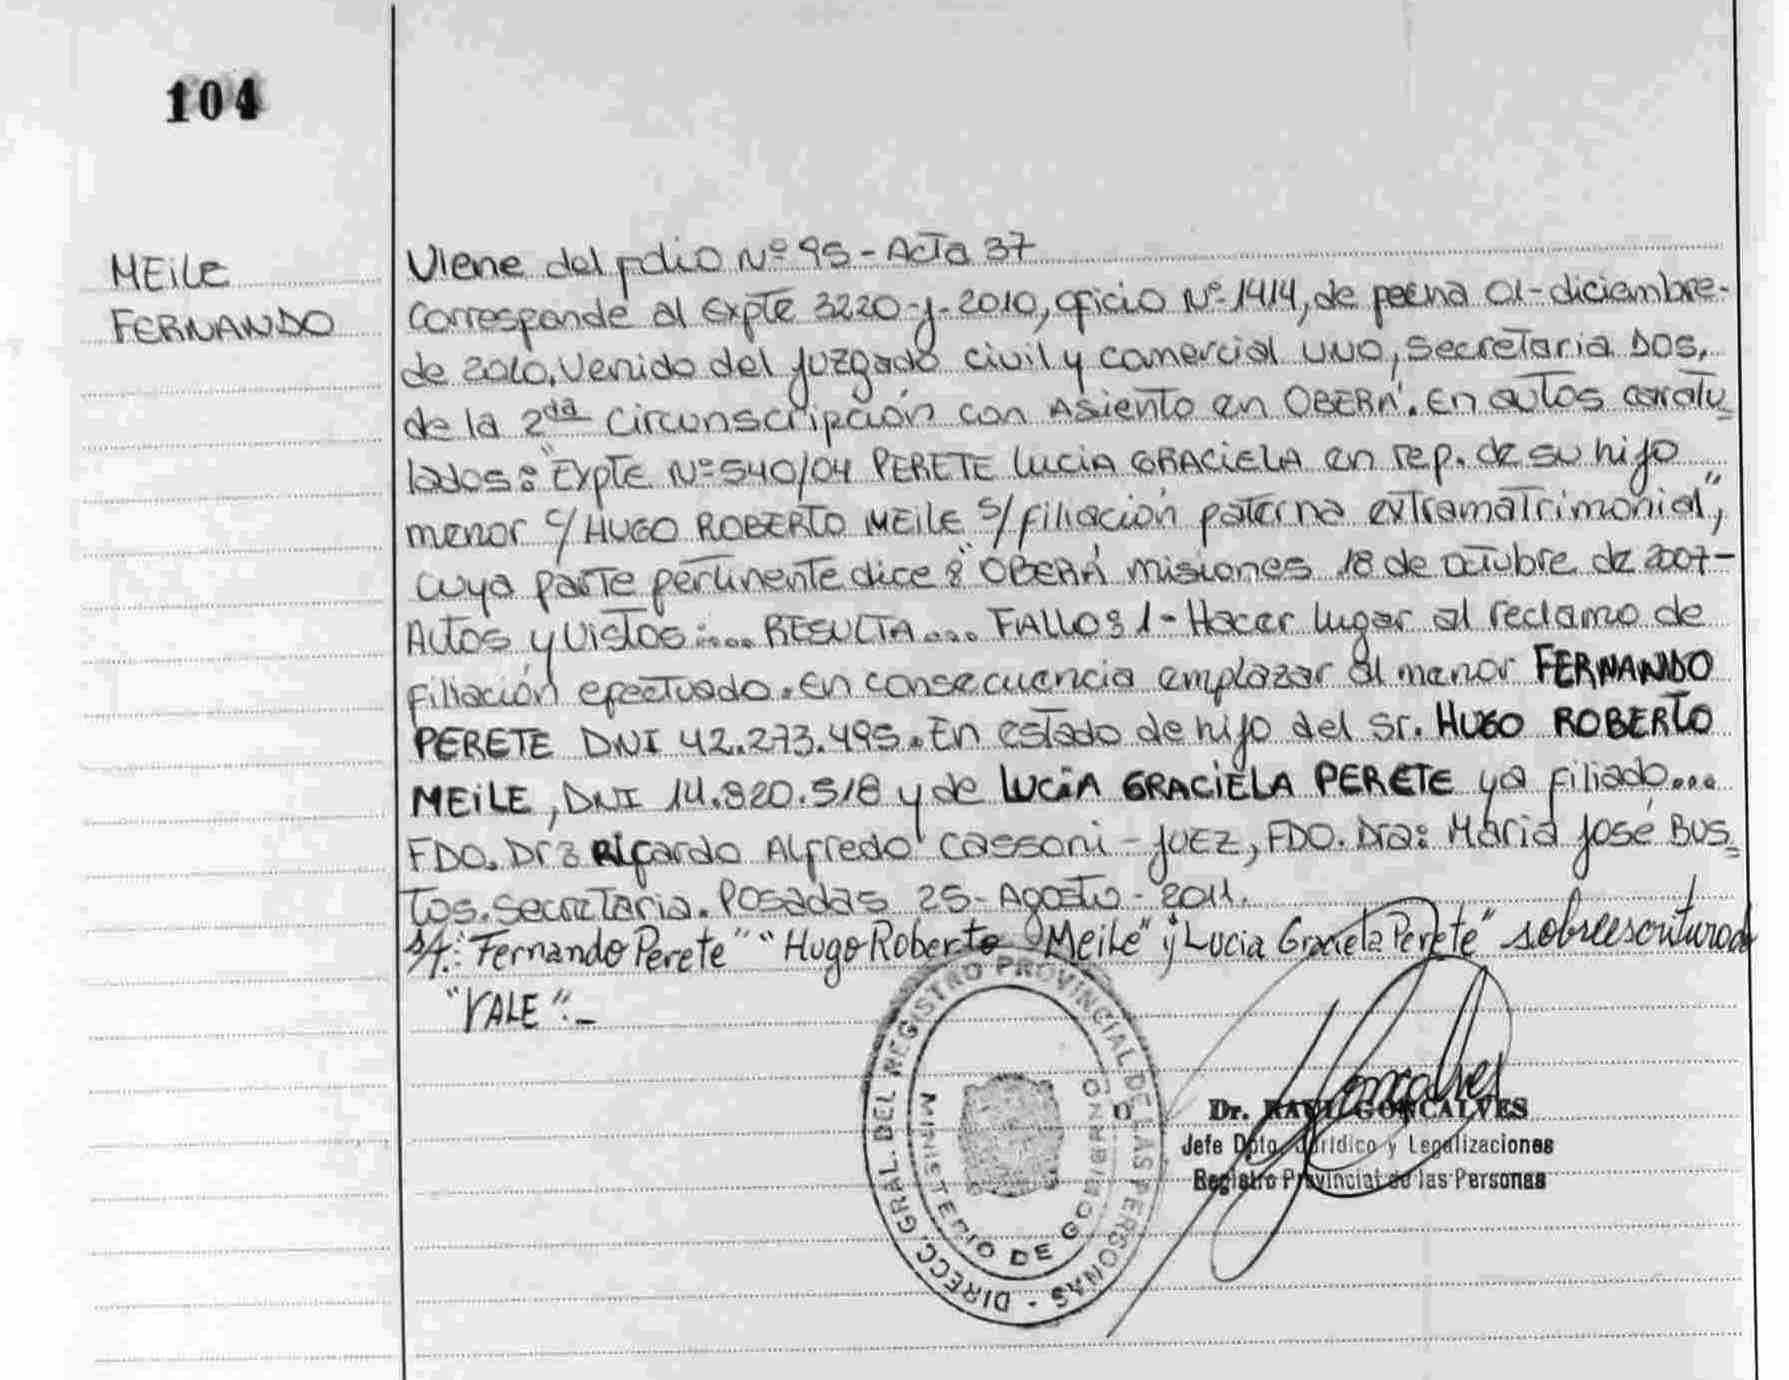 104
MEILE
FERNANDO
Viene del folio Nº 95 - Acta 37
Corresponde al Expte 3220-J-2010, oficio Nº 1414, de fecha 01-diciembre-
de 2010. Venido del juzgado civil y comercial UNO, secretaria DOS,
de la 2da circunscripción con Asiento en OBERÁ. En autos caratu
lados: "EXpte Nº 540/04 PERETE LUCIA GRACIELA en rep. de su hijo
menor c/ HUGO ROBERTO MEILE s/ filiación paterna extramatrimonial",
cuya parte pertinente dice: "OBERÁ misiones 18 de octubre de 2007-
Autos y Vistos:.... RESULTA.... FALLO: 1- Hacer lugar al reclamo de
filiación efectuado. En consecuencia emplazar al menor FERNANDO
PERETE DNI 42.273.495. En estado de hijo del Sr. HUGO ROBERTO
MEILE, DNI 14.820.518 y de LUCIA GRACIELA PERETE ya filiado...
FDO. Dr: Ricardo Alfredo Cassoni - JUEZ, FDO. Dra: Maria José Bus
tos. Secretaria. Posadas 25- Agosto - 2011.
s/t.: "Fernando Perete" "Hugo Roberto Meile" y "Lucia Graciela Perete" sobreescriturado
"VALE".-
DIRECC. GRAL. DEL REGISTRO PROVINCIAL DE LAS PERSONAS -
MINISTERIO DE GOBIERNO
Dr. RAUL GONCALVES
Jefe Dpto. Jurídico y Legalizaciones
Registro Provincial de las Personas